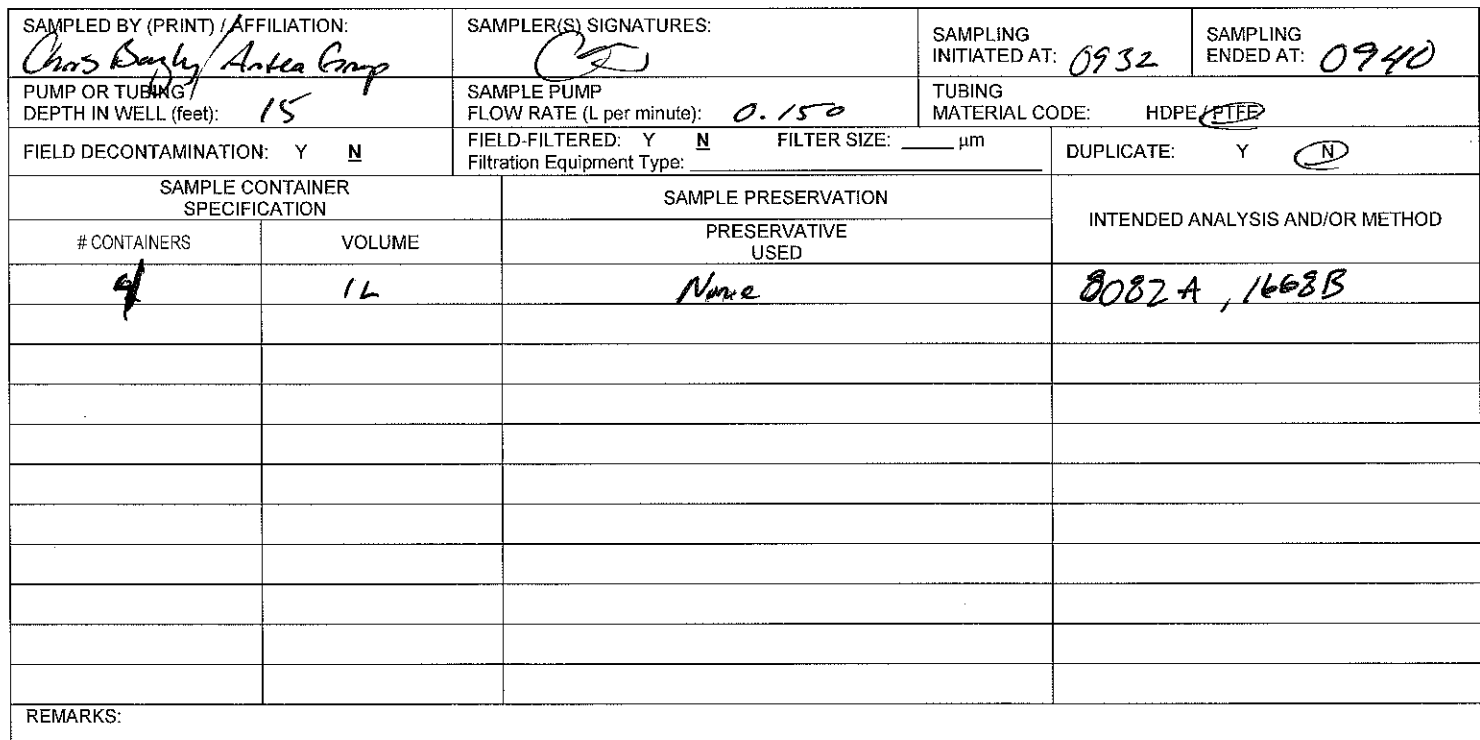 SAMPLED BY (PRINT) / AFFILIATION:
Chris Bagly / Antea Group
SAMPLER(S) SIGNATURES:
SAMPLING
INITIATED AT: 0932
SAMPLING
ENDED AT: 0940
PUMP OR TUBING
DEPTH IN WELL (feet): 15
SAMPLE PUMP
FLOW RATE (L per minute): 0.150
TUBING
MATERIAL CODE: HDPE / PTFE
FIELD DECONTAMINATION: Y N
FIELD-FILTERED: Y N FILTER SIZE: _____ μm
Filtration Equipment Type:
DUPLICATE: Y N
SAMPLE CONTAINER
SPECIFICATION
SAMPLE PRESERVATION
INTENDED ANALYSIS AND/OR METHOD
# CONTAINERS
VOLUME
PRESERVATIVE
USED
1L
None
8082A, 1668B
REMARKS: